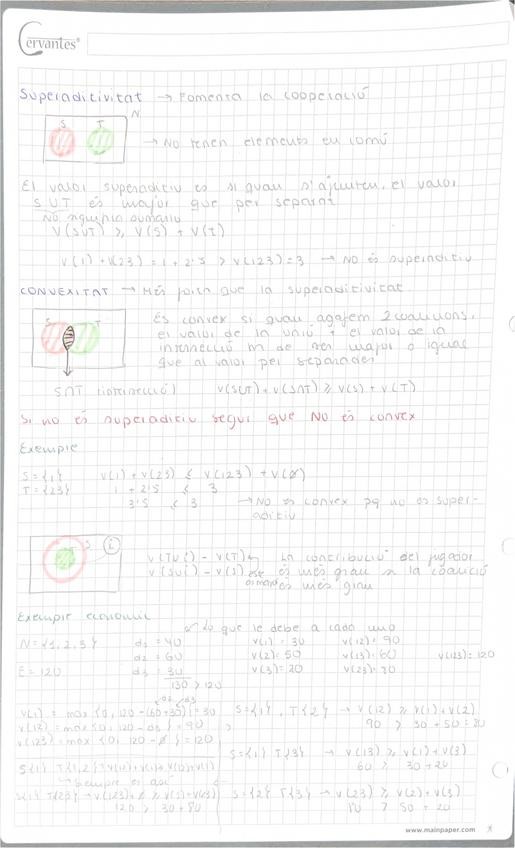 Cervantes®
Superaditivitat → Fomenta la cooperació
N
S T
→ No tenen elements en comú
El valor superaditiu es si quan s'ajunten, el valor
SUT és major que per separat
V(SUT) ≥ V(S) + V(T)
V(1) + V(23) = 1 + 2'5 > V(123) = 3 → No és superaditiu
CONVEXITAT → Més forta que la superaditivitat
S T
És convex si quan agafem 2 coalicions,
el valor de la unió + el valor de la
intersecció ha de ser major o igual
que al valor per separades
S∩T (intersecció) V(SUT) + V(S∩T) ≥ V(S) + V(T)
Si no és superaditiu segur que NO és convex
Exemple
S = {1} V(1) + V(23) ≤ V(123) + V(Ø)
T = {23} 1 + 2'5 ≤ 3
3'5 ≤ 3 → No es convex pq no es super-
aditiu
S i
V(TUi) - V(T) La contribució del jugador
V(SUi) - V(S) és més gran a la coalició
és més gran
Exemple econòmic
Lo que le debe a cada uno
N = {1, 2, 3} d1 = 40 V(1) = 30 V(12) = 90
d2 = 60 V(2) = 50 V(13) = 60 V(123) = 120
E = 120 d3 = 30 V(3) = 20 V(23) = 70
130 > 120
d2 d3
V(1) = max {0, 120 - (60+30)} = 30 S = {1}, T{2} → V(12) ≥ V(1) + V(2)
V(12) = max {0, 120 - d3 } = 90 90 > 30 + 50 = 80
V(123) = max {0, 120 - Ø } = 120
S = {1} T{3} → V(13) ≥ V(1) + V(3)
60 > 30 + 20
S{1} T{1,2}
Sempre és així
S{1} T{23} → V(123) ≥ V(1) + V(23) S = {2} T{3} → V(23) ≥ V(2) + V(3)
120 > 30 +
www.mainpaper.com